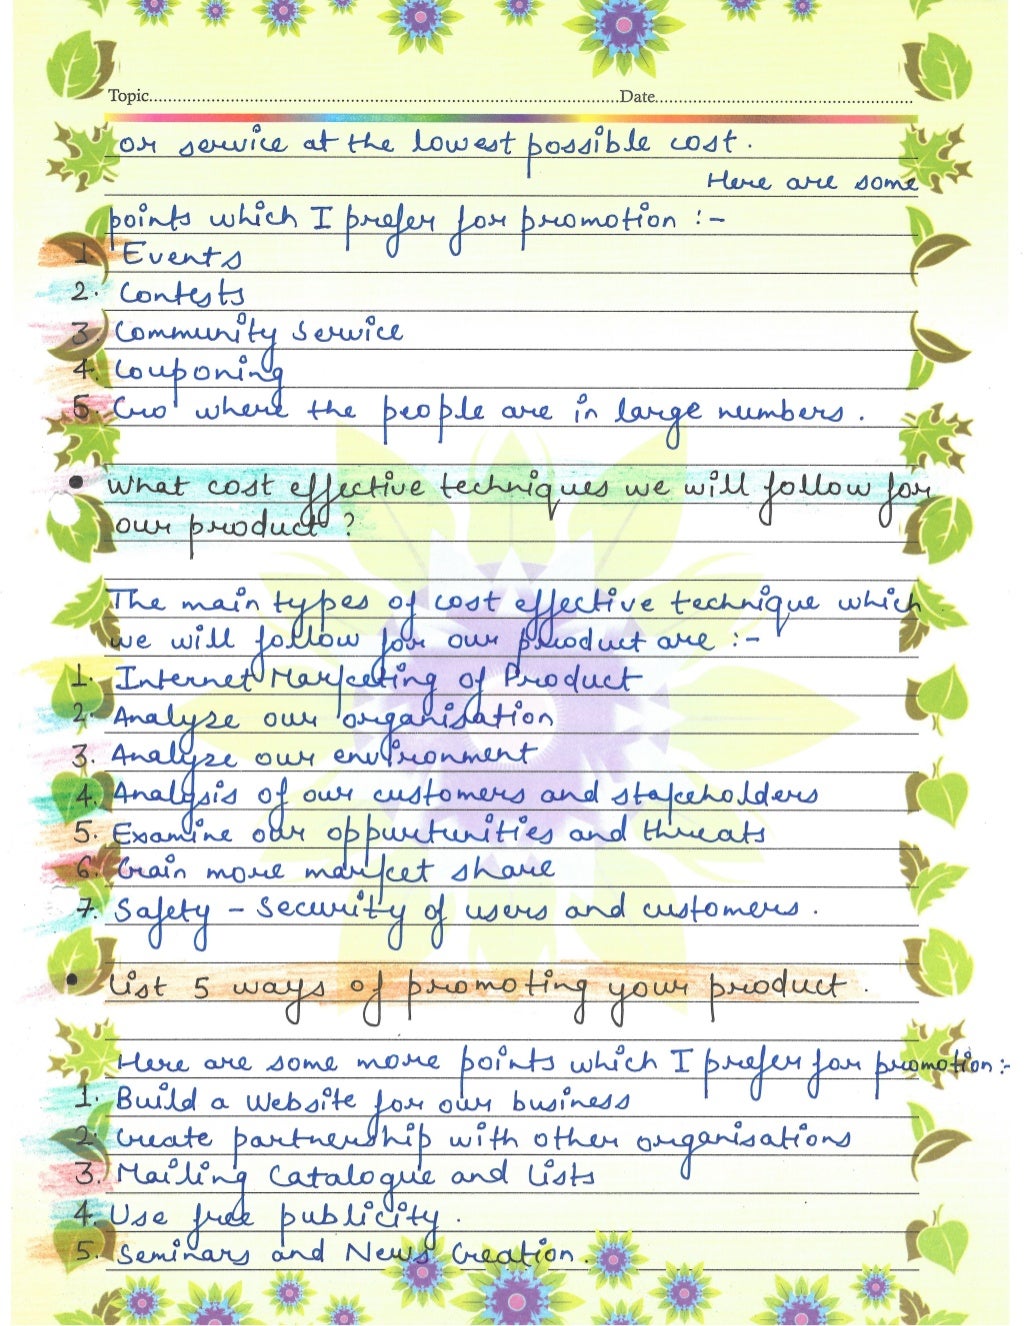 Topic........................Date........................
or service at the lowest possible cost.
Here are some
points which I prefer for promotion :-
1. Events
2. Contests
3. Community Service
4. Couponing
5. Go where the people are in large numbers.
• What cost effective techniques we will follow for
our product ?
The main types of cost effective technique which
we will follow for our product are :-
1. Internet Marketing of Product
2. Analyze our organisation
3. Analyze our environment
4. Analysis of our customers and stakeholders
5. Examine our oppurtunities and threats
6. Gain more market share
7. Safety - Security of users and customers.
• List 5 ways of promoting your product.
Here are some more points which I prefer for promotion :-
1. Build a Website for our business
2. Create partnership with other organisations
3. Mailing Catalogue and Lists
4. Use free publicity.
5. Seminars and News Creation.